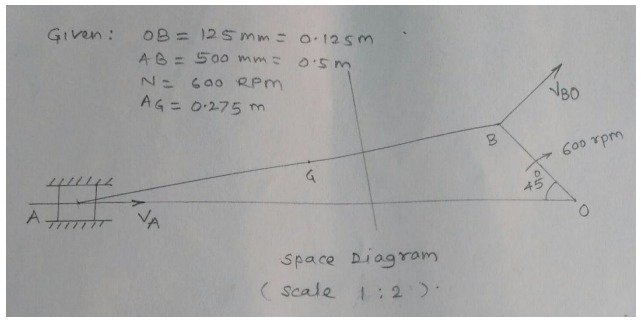 Given: OB = 125 mm = 0.125m
AB = 500 mm = 0.5m
N = 600 RPM
AG = 0.275 m
VBO
B
600 rpm
G
45°
A
VA
O
Space Diagram
(Scale 1:2).